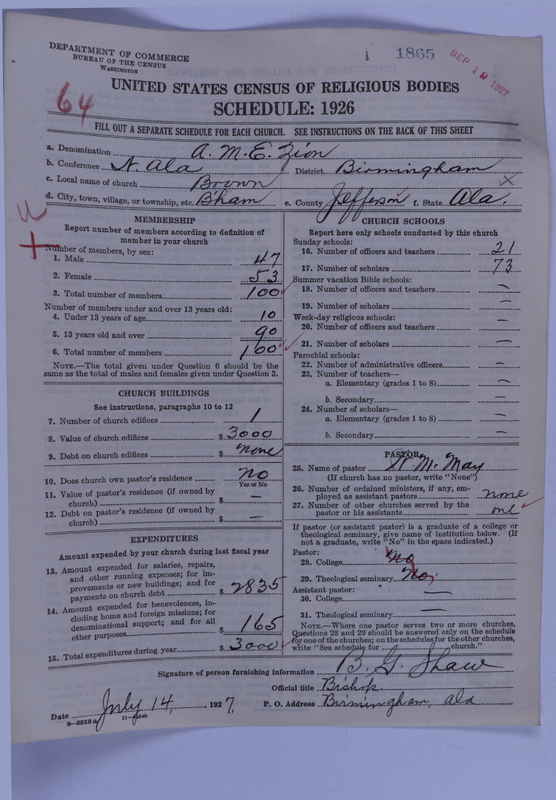 DEPARTMENT OF COMMERCE
BUREAU OF THE CENSUS
WASHINGTON
1865
SEP 19 1927
64
UNITED STATES CENSUS OF RELIGIOUS BODIES
SCHEDULE: 1926
FILL OUT A SEPARATE SCHEDULE FOR EACH CHURCH. SEE INSTRUCTIONS ON THE BACK OF THIS SHEET
a. Denomination A. M. E. Zion
b. Conference N. Ala District Birmingham
c. Local name of church Brown
d. City, town, village, or township, etc. Bham e. County Jefferson f. State Ala.
MEMBERSHIP
Report number of members according to definition of
member in your church
Number of members, by sex:
1. Male 47
2. Female 53
3. Total number of members 100
Number of members under and over 13 years old:
4. Under 13 years of age 10
5. 13 years old and over 90
6. Total number of members 100
NOTE.—The total given under Question 6 should be
same as the total of males and females given under Question 3.
CHURCH BUILDINGS
See instructions, paragraphs 10 to 12
7. Number of church edifices 1
8. Value of church edifices $ 3000
9. Debt on church edifices $ none
10. Does church own pastor's residence No
Yes or No
11. Value of pastor's residence (if owned by
church) $ —
12. Debt on pastor's residence (if owned by
church) $ —
EXPENDITURES
Amount expended by your church during last fiscal year
13. Amount expended for salaries, repairs,
and other running expenses; for im-
provements or new buildings; and for
payments on church debt $ 2835
14. Amount expended for benevolences, in-
cluding home and foreign missions; for
denominational support; and for all
other purposes $ 165
15. Total expenditures during year $ 3000
CHURCH SCHOOLS
Report here only schools conducted by this church
Sunday schools:
16. Number of officers and teachers 21
17. Number of scholars 73
Summer vacation Bible schools:
18. Number of officers and teachers —
19. Number of scholars —
Week-day religious schools:
20. Number of officers and teachers —
21. Number of scholars —
Parochial schools:
22. Number of administrative officers —
23. Number of teachers—
a. Elementary (grades 1 to 8) —
b. Secondary —
24. Number of scholars—
a. Elementary (grades 1 to 8) —
b. Secondary —
PASTOR
25. Name of pastor M. May
(If church has no pastor, write "None")
26. Number of ordained ministers, if any, em-
ployed as assistant pastors none
27. Number of other churches served by the
pastor or his assistants one
If pastor (or assistant pastor) is a graduate of a college or
theological seminary, give name of institution below. (If
not a graduate, write "No" in the space indicated.)
Pastor:
28. College No
29. Theological seminary No
Assistant pastor:
30. College —
31. Theological seminary —
NOTE.—Where one pastor serves two or more churches,
Questions 28 and 29 should be answered only on the schedule
for one of the churches; on the schedules for the other churches,
write "See schedule for church."
Signature of person furnishing information B. G. Shaw
Official title Bishop.
Date July 14, 1927. P. O. Address Birmingham, Ala